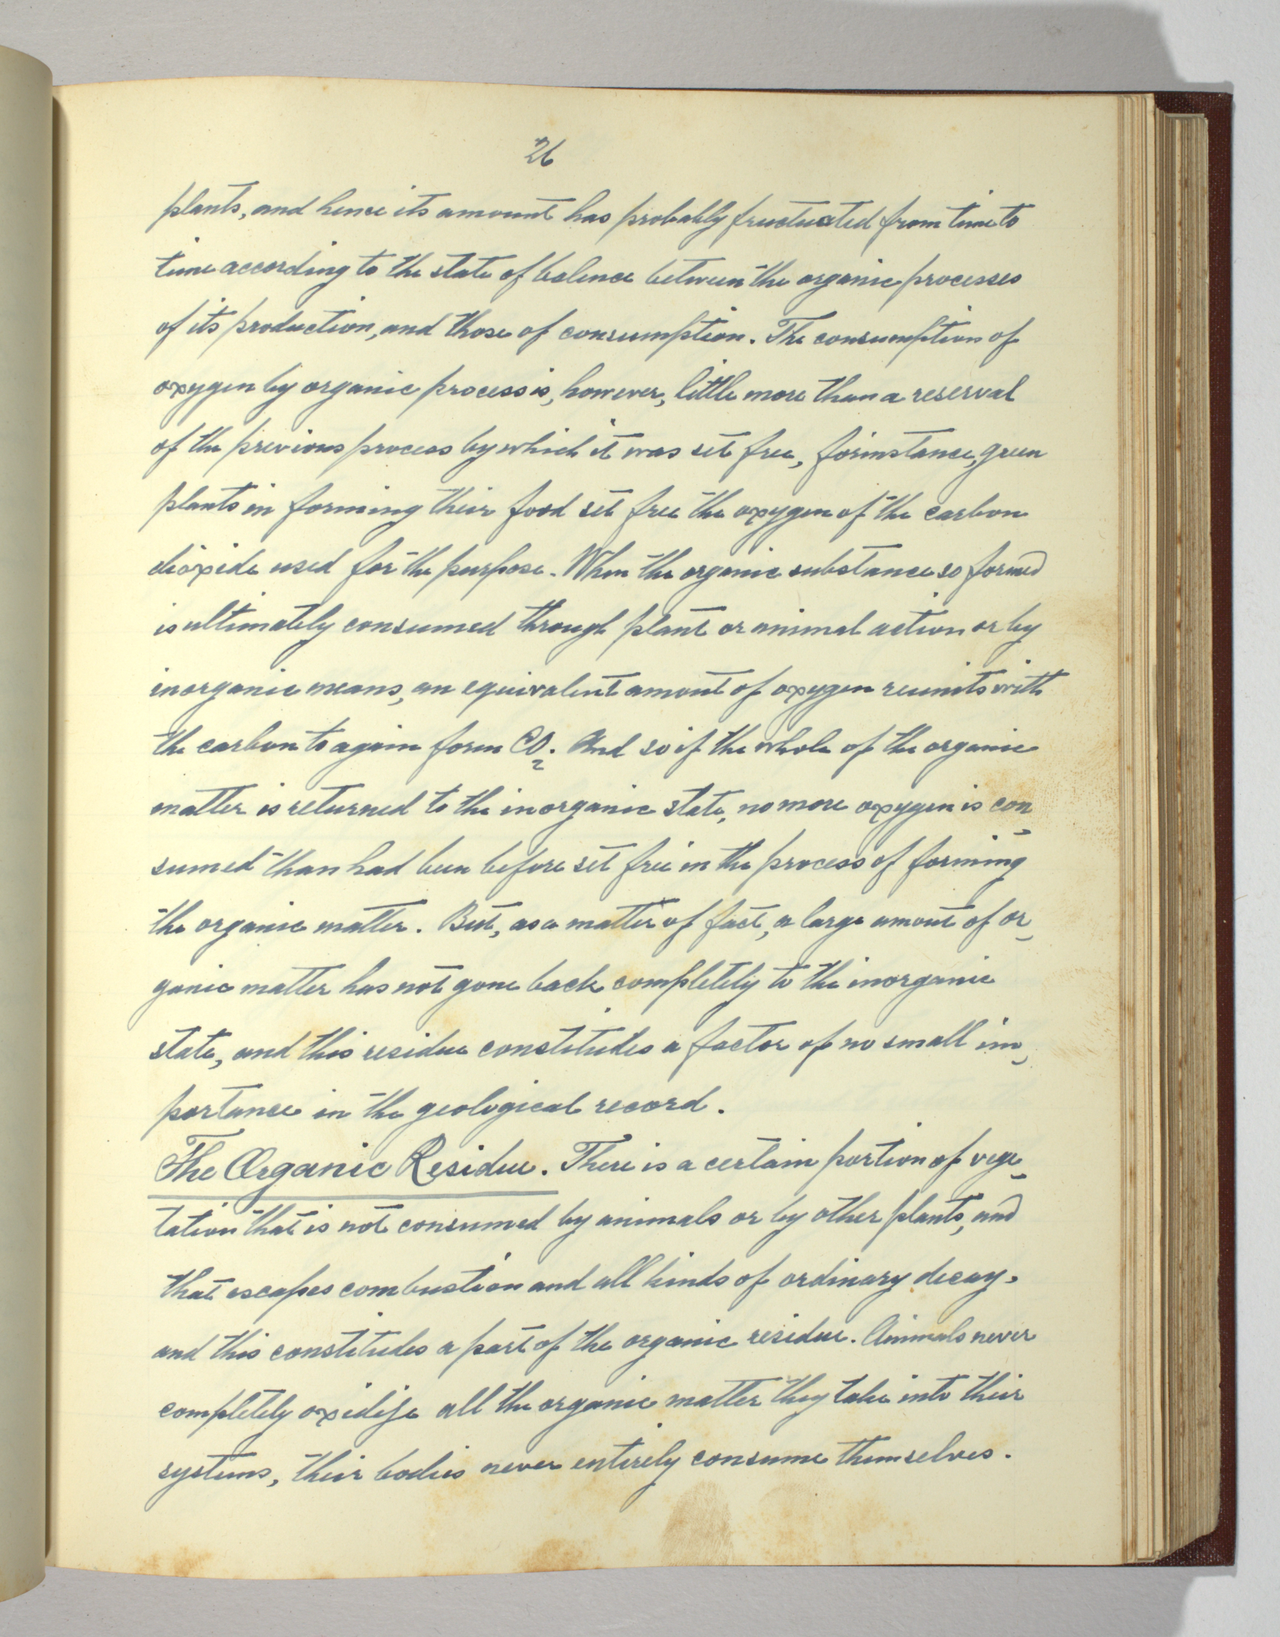 26
plants, and hence its amount has probably fructuated from time to
time according to the state of balence between the organic processes
of its production, and those of consumption. The consumption of
oxygen by organic process is, however, little more than a reserval
of the previous process by which it was set free, forinstance, green
plants in forming their food set free the oxygen of the carbon
dioxide used for the purpose. When the organic substance so formed
is ultimately consumed through plant or animal action or by
inorganic means, an equivalent amount of oxygen reunits with
the carbon to again form CO₂. And so if the whole of the organic
matter is returned to the inorganic state, no more oxygen is con-
sumed than had been before set free in the process of forming
the organic matter. But, as a matter of fact, a large amount of or-
ganic matter has not gone back completely to the inorganic
state, and this residue constitudes a factor of no small im-
portance in the geological record.
The Organic Residue. There is a certain portion of vege-
tation that is not consumed by animals or by other plants, and
that escapes combustion and all kinds of ordinary decay,
and this constitudes a part of the organic residue. Animals never
completely oxidize all the organic matter they take into their
systems, their bodies never entirely consume themselves.